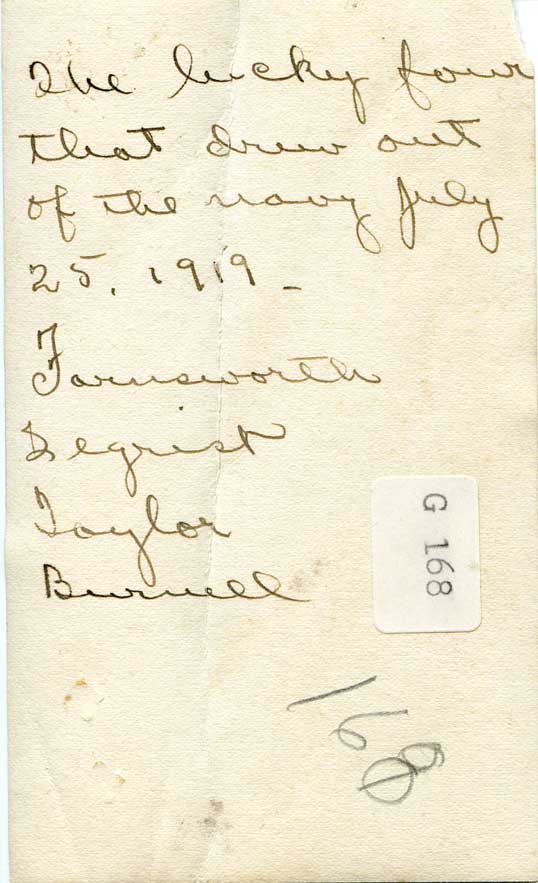 The lucky four
that drew out
of the navy July
25, 1919 -
Farnsworth
Segrist
Taylor
Burnell
G 168
168